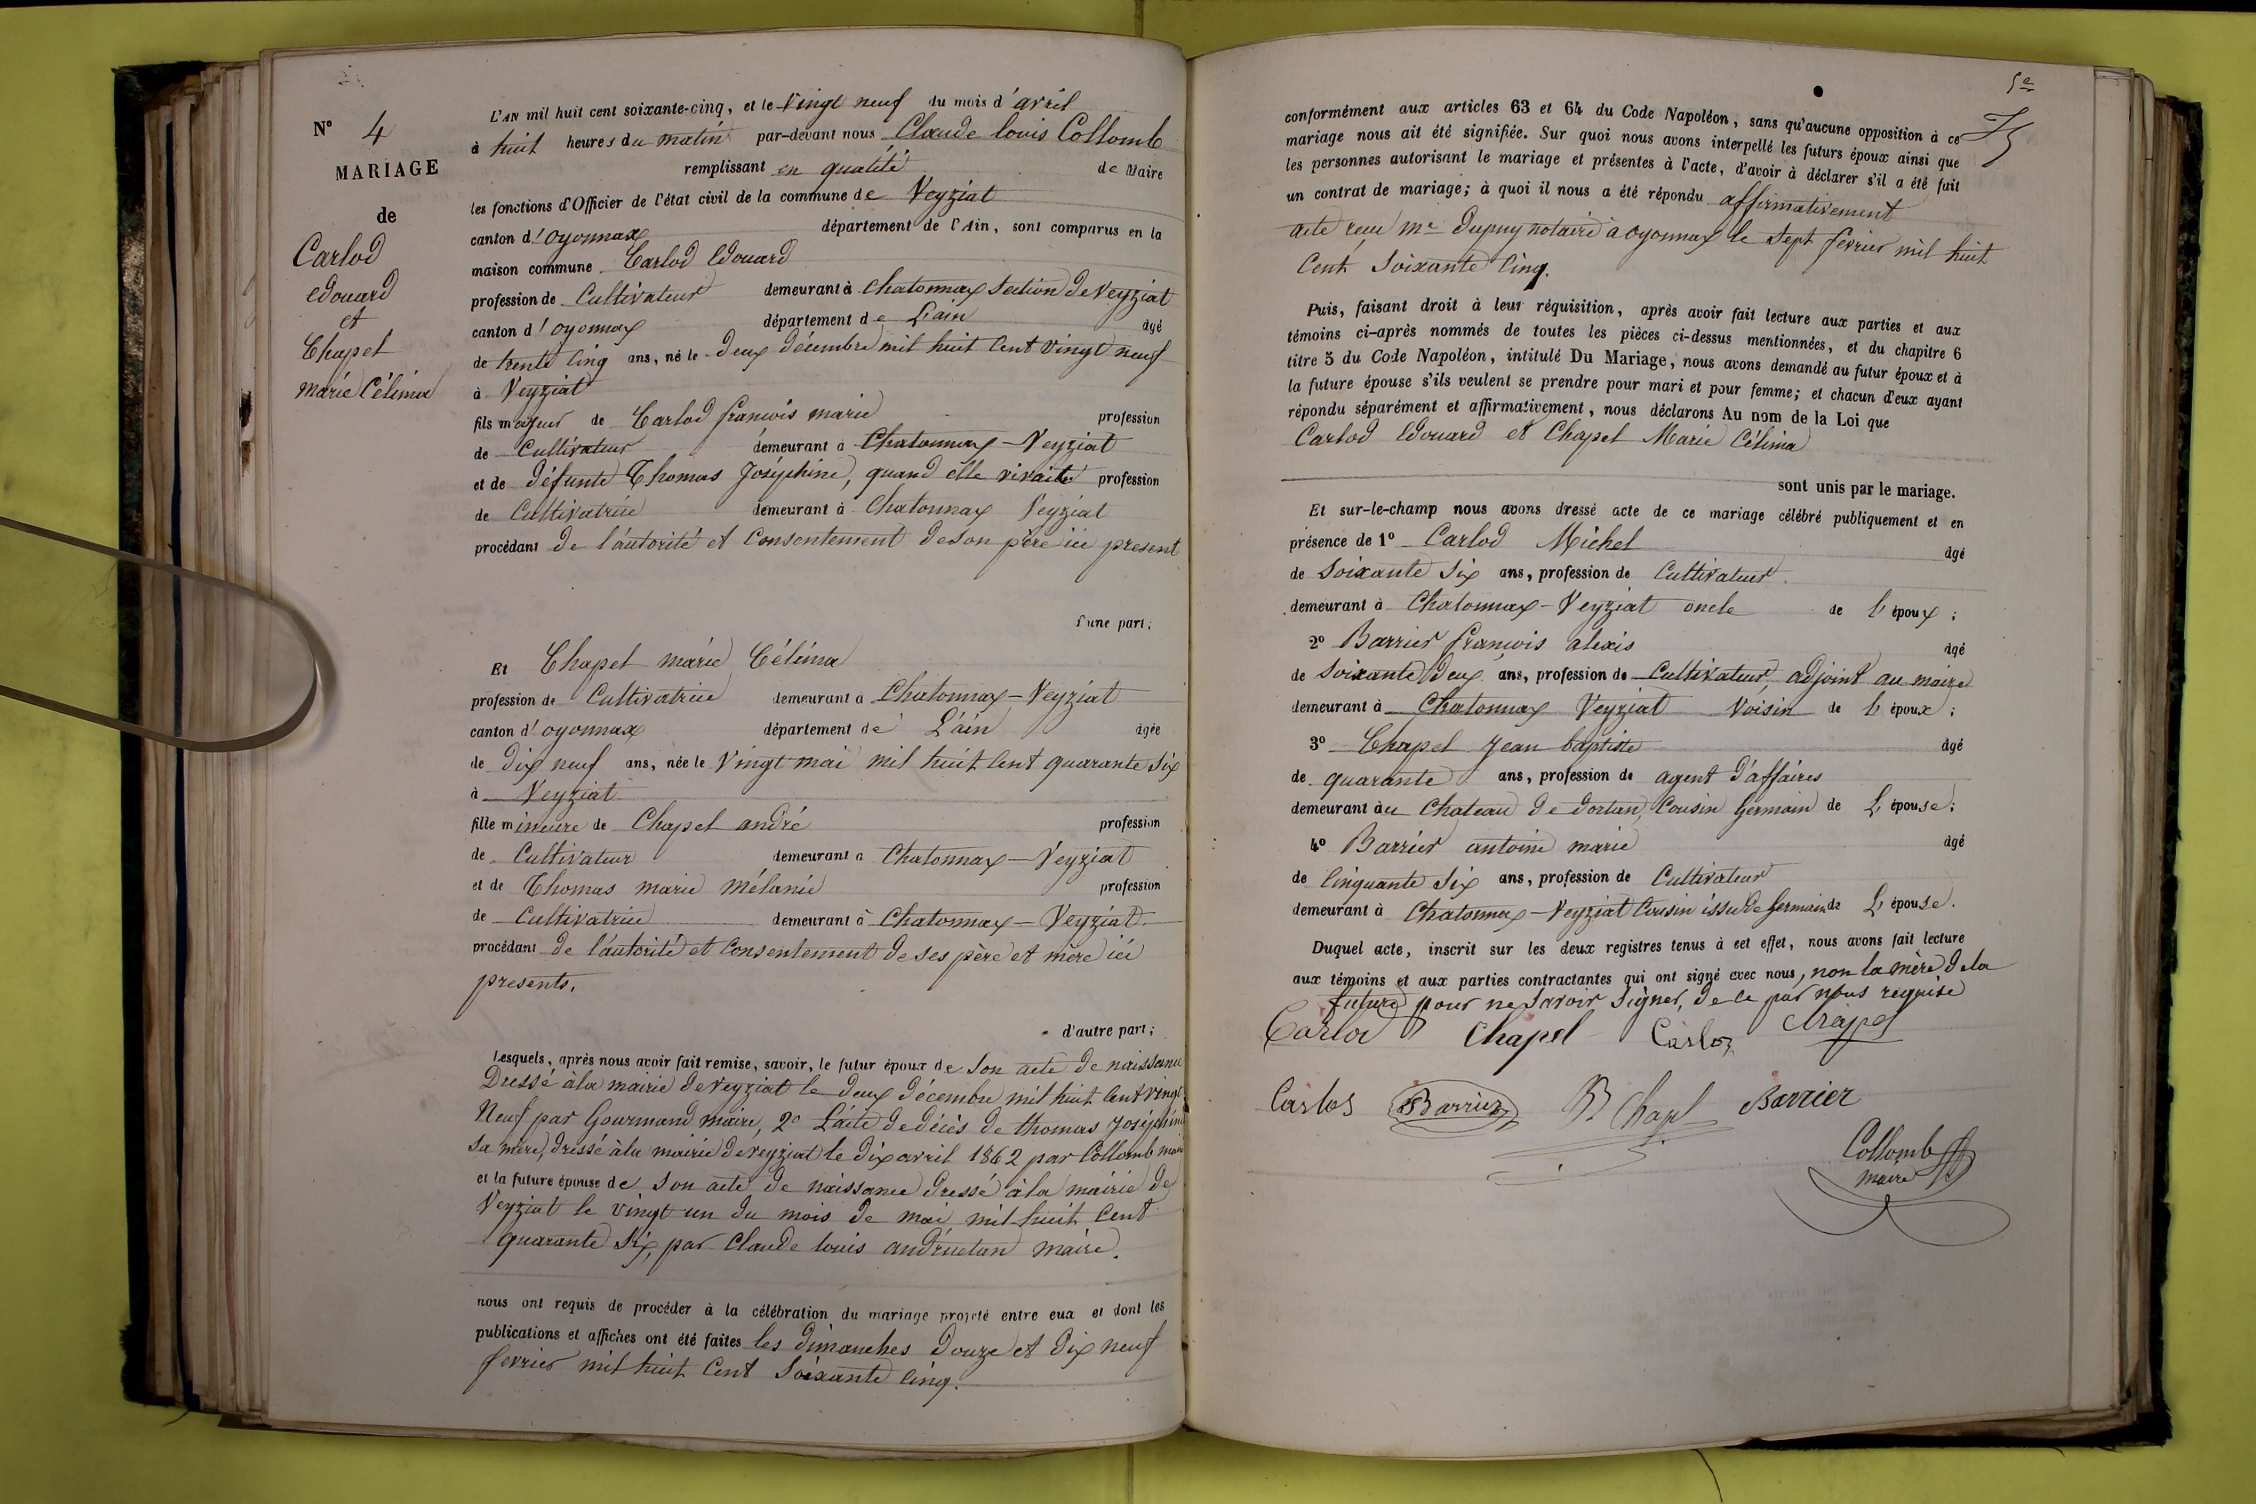 N° 4
MARIAGE
de
Carlod
edouard
et
Chapel
marie Célima
L'AN mil huit cent soixante-cinq, et le Vingt neuf du mois d'avril
à huit heures du matin par-devant nous Claude louis Collomb
remplissant en qualité de Maire
les fonctions d'Officier de l'état civil de la commune de Veyziat
canton d'oyonnax département de l'Ain, sont comparus en la
maison commune Carlod Edouard
profession de Cultivateur demeurant à Chatonnax section de Veyziat
canton d'oyonnax département de L'ain âgé
de trente cinq ans, né le deux décembre mil huit cent vingt neuf
à Veyziat
fils majeur de Carlod francois marie profession
de Cultivateur demeurant à Chatonnax - Veyziat
et de défunte Thomas Joséphine, quand elle vivaite profession
de Cultivatrice demeurant à Chatonnax Veyziat
procédant de l'autorité et consentement de son père ici present
d'une part;
Et Chapel marie Célima
profession de Cultivatrice demeurant à Chatonnax - Veyziat
canton d'oyonnax département de L'ain âgée
de dix neuf ans, née le Vingt mai mil huit cent quarante six
à Veyziat
fille mineure de Chapel andré profession
de Cultivateur demeurant à Chatonnax - Veyziat
et de Thomas marie mélanie profession
de Cultivatrice demeurant à Chatonnax - Veyziat
procédant de l'autorité et consentement de ses père et mère ici
presents.
d'autre part;
Lesquels, après nous avoir fait remise, savoir, le futur époux de son acte de naissance
Dressé à la mairie de veyziat le deux décembre mil huit cent vingt
Neuf par Gourmand maire, 2° L'acte de décès de thomas Joséphine
sa mère, dressé à la mairie de veyziat le dix avril 1862 par Collomb maire
et la future épouse de son acte de naissance dressé à la mairie de
Veyziat le vingt un du mois de mai mil huit cent
quarante six, par Claude louis andruetan maire.
nous ont requis de procéder à la célébration du mariage projeté entre eux et dont les
publications et affiches ont été faites les dimanches douze et dix neuf
fevrier mil huit cent soixante cinq.
5e
conformément aux articles 63 et 64 du Code Napoléon, sans qu'aucune opposition à ce
mariage nous ait été signifiée. Sur quoi nous avons interpellé les futurs époux ainsi que
les personnes autorisant le mariage et présentes à l'acte, d'avoir à déclarer s'il a été fait
un contrat de mariage; à quoi il nous a été répondu affirmativement
acte recu me Dupuy notaire à oyonnax le sept fevrier mil huit
Cent Soixante cinq.
Puis, faisant droit à leur réquisition, après avoir fait lecture aux parties et aux
témoins ci-après nommés de toutes les pièces ci-dessus mentionnées, et du chapitre 6
titre 5 du Code Napoléon, intitulé Du Mariage, nous avons demandé au futur époux et à
la future épouse s'ils veulent se prendre pour mari et pour femme; et chacun d'eux ayant
répondu séparément et affirmativement, nous déclarons Au nom de la Loi que
Carlod Edouard et Chapel Marie Célima
sont unis par le mariage.
Et sur-le-champ nous avons dressé acte de ce mariage célébré publiquement et en
présence de 1° Carlod Michel âgé
de soixante six ans, profession de Cultivateur
demeurant à Chatonnax - Veyziat oncle de l'époux;
2° Barrier francois alexis âgé
de soixante deux ans, profession de Cultivateur, adjoint au maire
demeurant à Chatonnax Veyziat Voisin de l'époux;
3° Chapel Jean baptiste âgé
de quarante ans, profession de agent d'affaires
demeurant au Chateau de dortan, Cousin Germain de L'épouse;
4° Barrier antoine marie âgé
de Cinquante six ans, profession de Cultivateur
demeurant à Chatonnax - Veyziat Cousin issu de Germain de L'épouse.
Duquel acte, inscrit sur les deux registres tenus à cet effet, nous avons fait lecture
aux témoins et aux parties contractantes qui ont signé avec nous, non la mère de la
future pour ne savoir signer, de ce par nous requise
Carlod Chapel Carlod Chapel
Carlod Barrier B Chapel Barrier
Collomb
maire